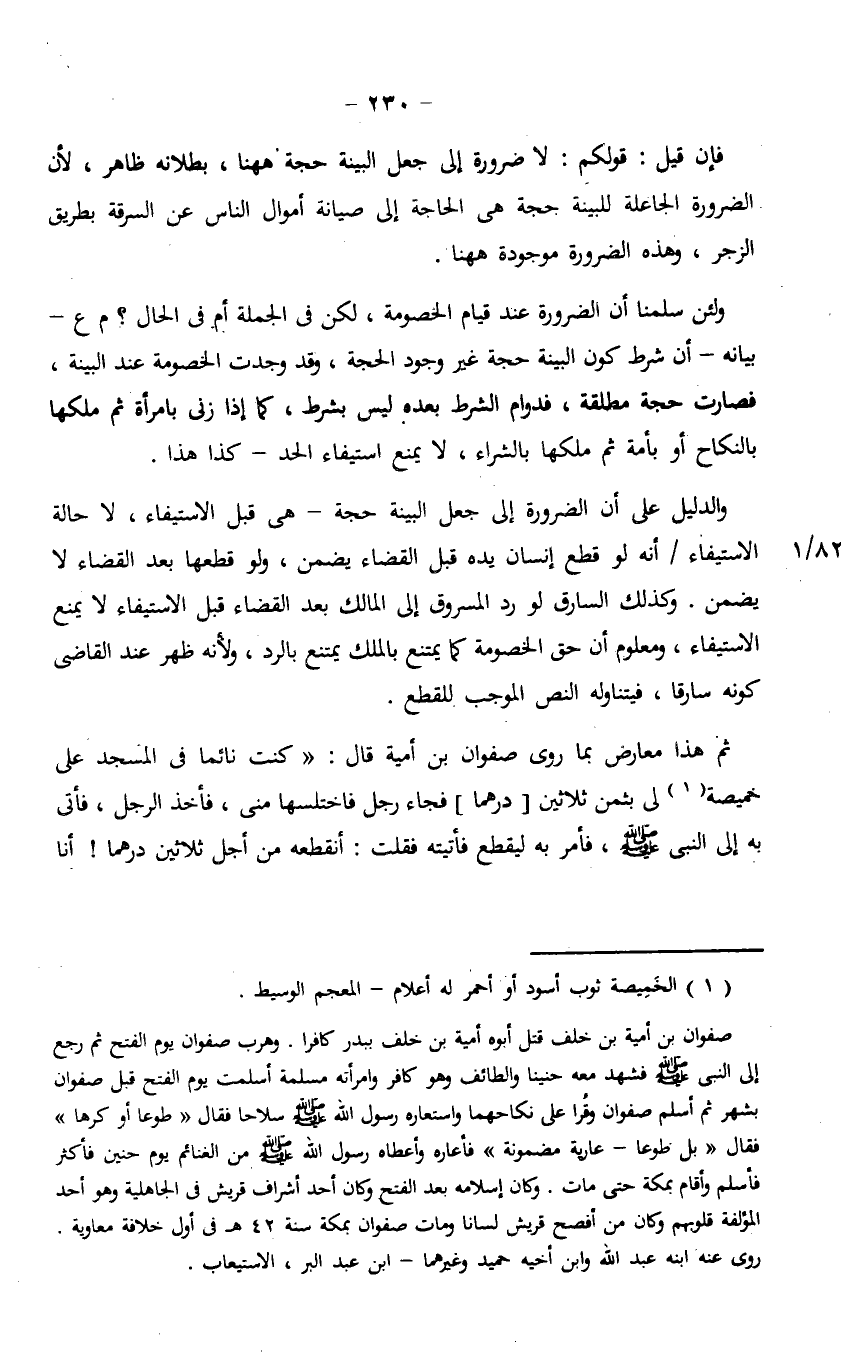 - ٢٣٠ -
فإن قيل : قولكم : لا ضرورة إلى جعل البينة حجة ههنا ، بطلانه ظاهر ، لأن
الضرورة الجاعلة للبينة حجة هى الحاجة إلى صيانة أموال الناس عن السرقة بطريق
الزجر ، وهذه الضرورة موجودة ههنا .
ولئن سلمنا أن الضرورة عند قيام الخصومة ، لكن فى الجملة أم فى الحال ؟ م ع –
بيانه – أن شرط كون البينة حجة غير وجود الحجة ، وقد وجدت الخصومة عند البينة ،
فصارت حجة مطلقة ، فدوام الشرط بعده ليس بشرط ، كما إذا زنى بامرأة ثم ملكها
بالنكاح أو بأمة ثم ملكها بالشراء ، لا يمنع استيفاء الحد – كذا هذا .
والدليل على أن الضرورة إلى جعل البينة حجة – هى قبل الاستيفاء ، لا حالة
الاستيفاء / أنه لو قطع إنسان يده قبل القضاء يضمن ، ولو قطعها بعد القضاء لا
١/٨٢
يضمن . وكذلك السارق لو رد المسروق إلى المالك بعد القضاء قبل الاستيفاء لا يمنع
الاستيفاء ، ومعلوم أن حق الخصومة كما يمتنع بالملك يمتنع بالرد ، ولأنه ظهر عند القاضى
كونه سارقا ، فيتناوله النص الموجب للقطع .
ثم هذا معارض بما روى صفوان بن أمية قال : « كنت نائما فى المسجد على
خميصة(١) لى بثمن ثلاثين [ درهما ] فجاء رجل فاختلسها منى ، فأخذ الرجل ، فأتى
به إلى النبى ﷺ ، فأمر به ليقطع فأتيته فقلت : أنقطعه من أجل ثلاثين درهما ! أنا
( ١ ) الخَمِيصة ثوب أسود أو أحمر له أعلام – المعجم الوسيط .
صفوان بن أمية بن خلف قتل أبوه أمية بن خلف ببدر كافرا . وهرب صفوان يوم الفتح ثم رجع
إلى النبى ﷺ فشهد معه حنينا والطائف وهو كافر وامرأته مسلمة أسلمت يوم الفتح قبل صفوان
بشهر ثم أسلم صفوان وقُرا على نكاحهما واستعاره رسول الله ﷺ سلاحا فقال « طوعا أو كرها »
فقال « بل طوعا – عارية مضمونة » فأعاره وأعطاه رسول الله ﷺ من الغنائم يوم حنين فأكثر
فأسلم وأقام بمكة حتى مات . وكان إسلامه بعد الفتح وكان أحد أشراف قريش فى الجاهلية وهو أحد
المؤلفة قلوبهم وكان من أفصح قريش لسانا ومات صفوان بمكة سنة ٤٢ هـ فى أول خلافة معاوية .
روى عنه ابنه عبد الله وابن أخيه حميد وغيرهما – ابن عبد البر ، الاستيعاب .